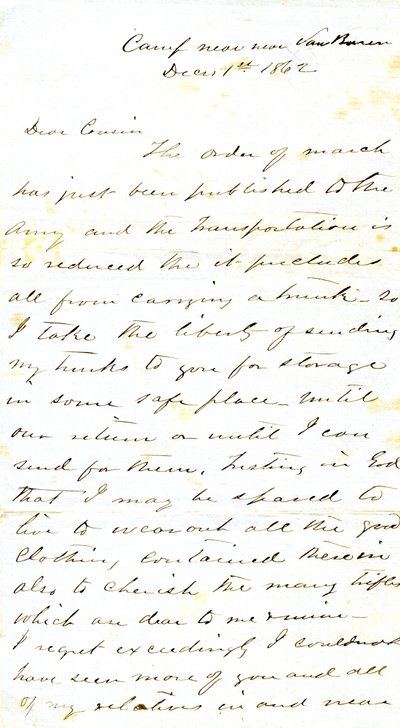 Camp near near Van Buren
Decr, 1st 1862
Dear Cousin
The order of march
has just been published to the
Army and the transportation is
so reduced the it precludes
all from carrying a trunk - so
I take the liberty of sending
my trunks to you for storage
in some safe place - until
our return or until I can
send for them, trusting in God
that I may be spared to
live to wear out all the good
clothin, contained therein
also to cherish the many trifles
which are dear to me & mine -
I regret exceedingly I could not
have seen more of you and all
of my relatives in and near